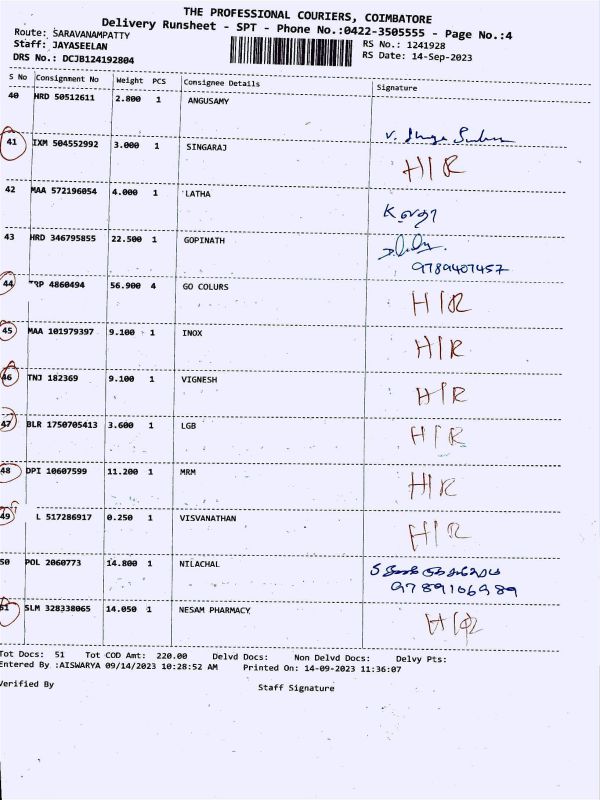 THE PROFESSIONAL COURIERS, COIMBATORE
Delivery Runsheet - SPT - Phone No.:0422-3505555 - Page No.:4
Route: SARAVANAMPATTY
Staff: JAYASEELAN
RS No.: 1241928
DRS No.: DCJB124192804
RS Date: 14-Sep-2023
S No Consignment No Weight PCS Consignee Details Signature
40 HRD 50512611 2.800 1 ANGUSAMY
41 IXM 504552992 3.000 1 SINGARAJ H/R
42 MAA 572196054 4.000 1 LATHA
43 HRD 346795855 22.500 1 GOPINATH
9789407457
44 TRP 4860494 56.900 4 GO COLURS H/R
45 MAA 101979397 9.100 1 INOX H/R
46 TNJ 182369 9.100 1 VIGNESH H/R
47 BLR 1750705413 3.600 1 LGB H/R
48 DPI 10607599 11.200 1 MRM H/R
49 L 517286917 0.250 1 VISVANATHAN H/R
50 POL 2060773 14.800 1 NILACHAL
9789106989
51 SLM 328338065 14.050 1 NESAM PHARMACY H/R
Tot Docs: 51 Tot COD Amt: 220.00 Delvd Docs: Non Delvd Docs: Delvy Pts:
Entered By :AISWARYA 09/14/2023 10:28:52 AM Printed On: 14-09-2023 11:36:07
Verified By Staff Signature